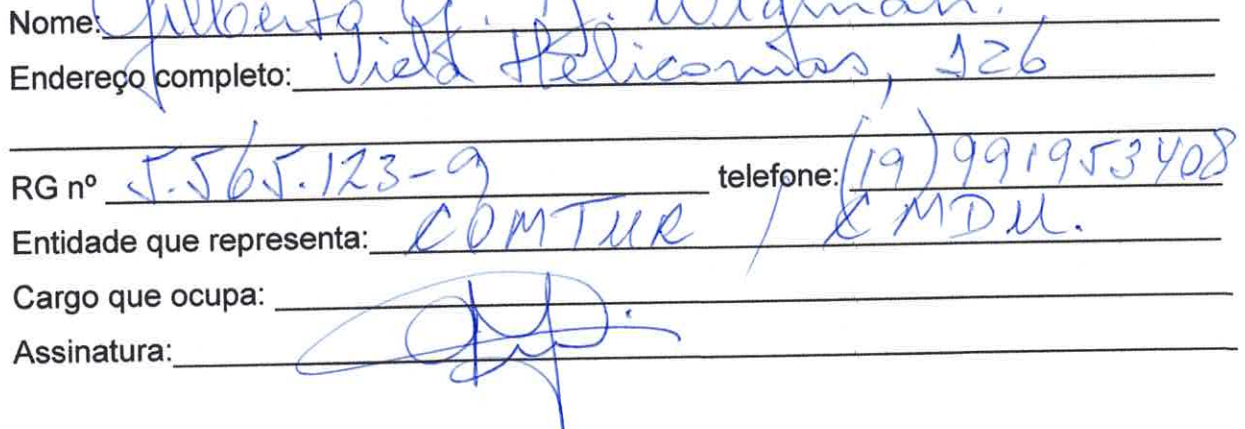 Nome: Gilberto Wigman.
Endereço completo: Viela Heliconias, 126
RG nº 5.565.123-9 telefone: (19) 991953408
Entidade que representa: COMTUR / CMDU.
Cargo que ocupa:
Assinatura: